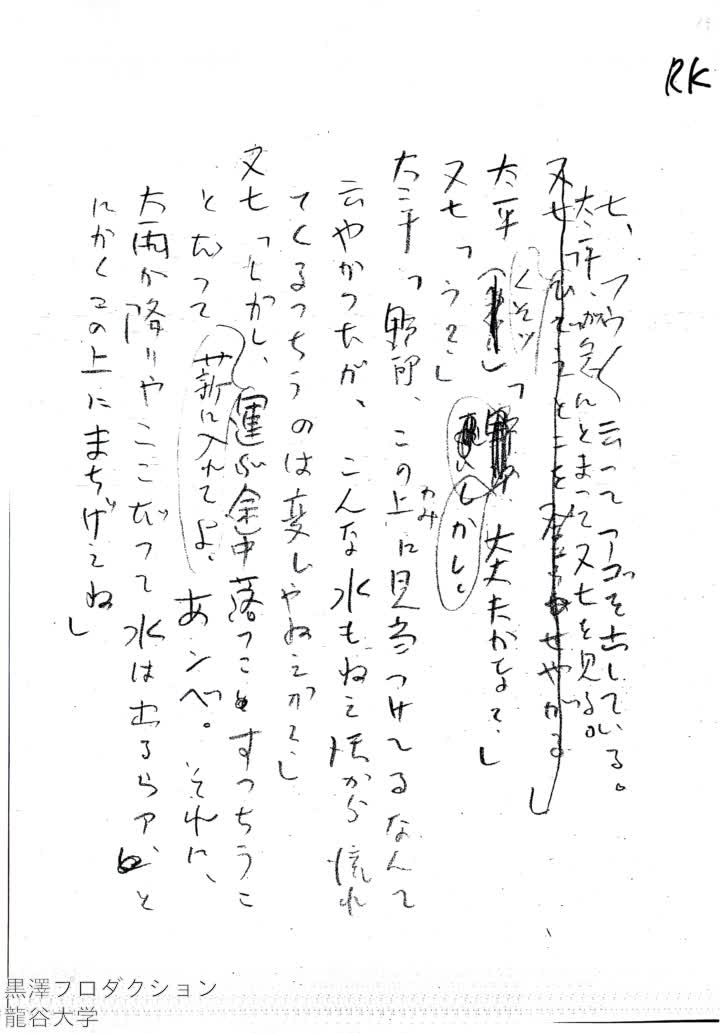 RK
七、フウ〳〵云ってアゴを出している。
太平、が急にとまって又七を見る。
又七「ひでうとこを登らせやがる」
太平「くそッ」「野郎、大丈夫かなァ」
又七「うん」しかし。
太平「野郎、この上に見当つけてるなんて
かみ
云やがったが、こんな水もねえ沢から流れ
てくるっちうのは変じゃねえか」
又七「しかし、運ぶ途中落っことすっちうこ
とだって薪に入れてよ、あンべ。それに、
大雨が降りやここだって水は出るらァ、と
にかくこの上にまちげえね」
黒澤プロダクション
龍谷大学